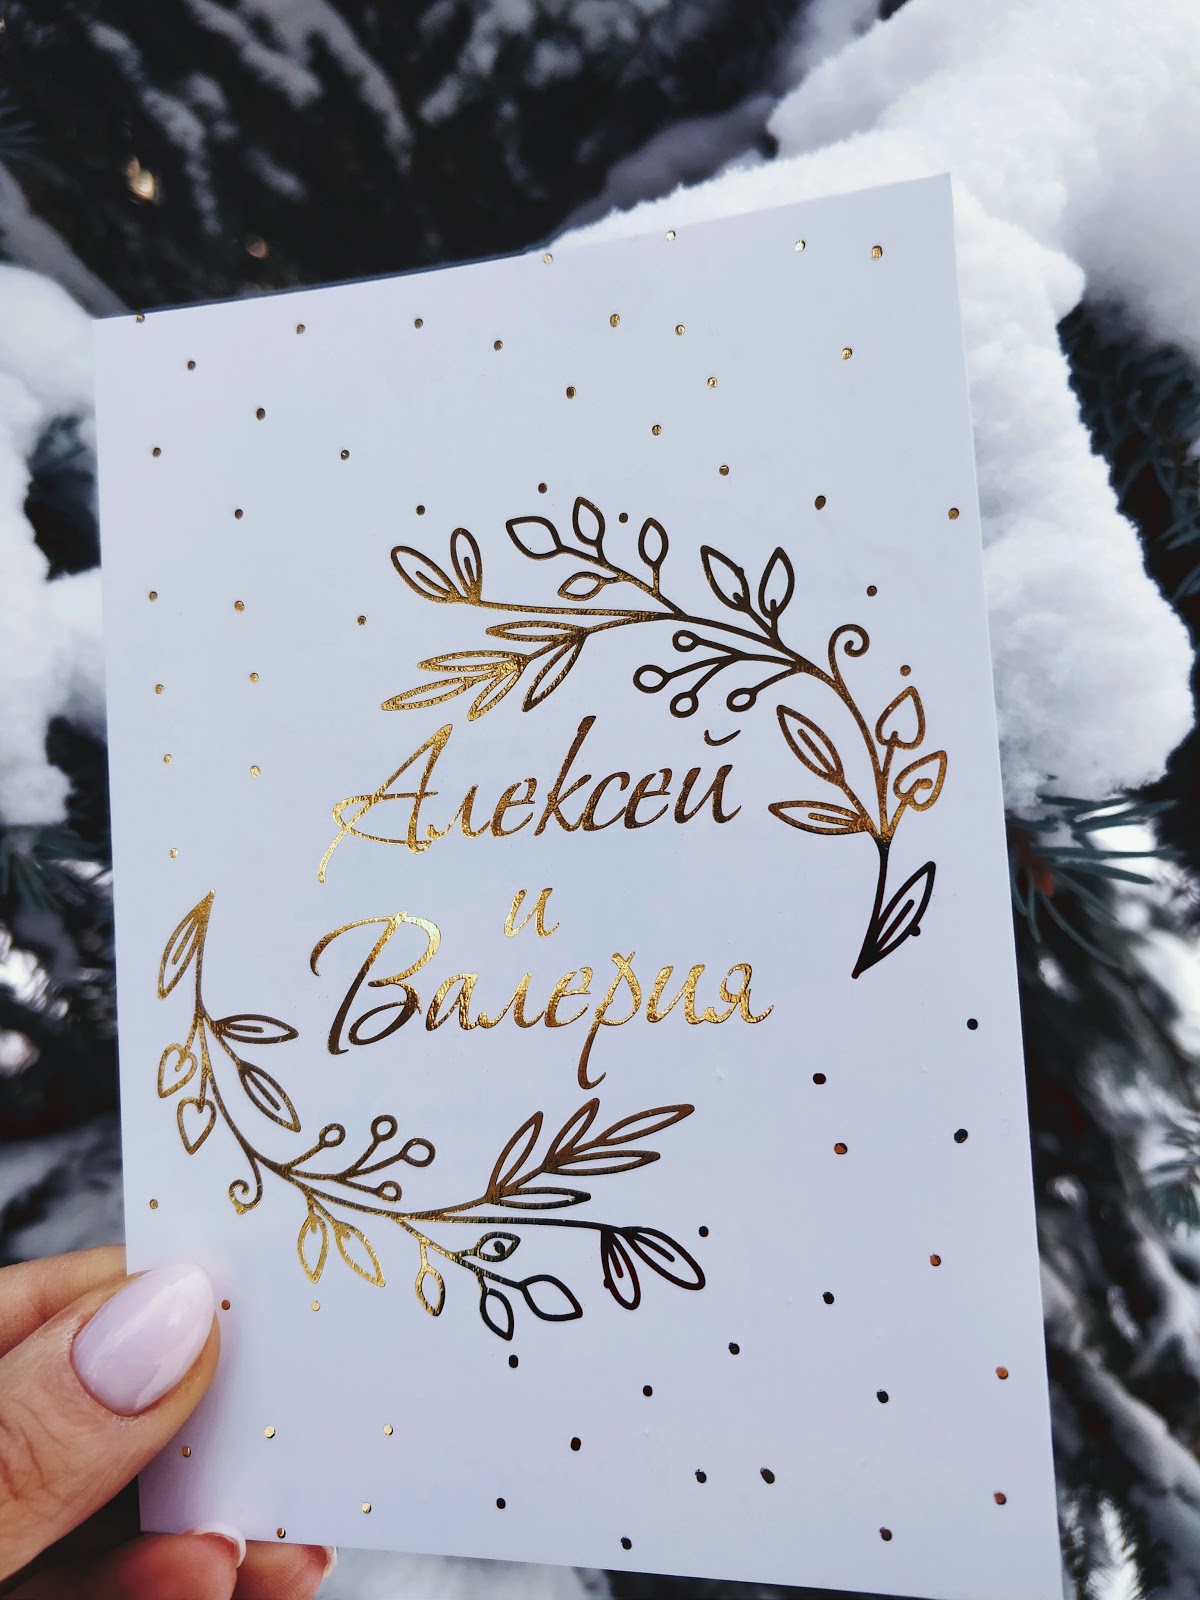 Алексей
и
Валерия